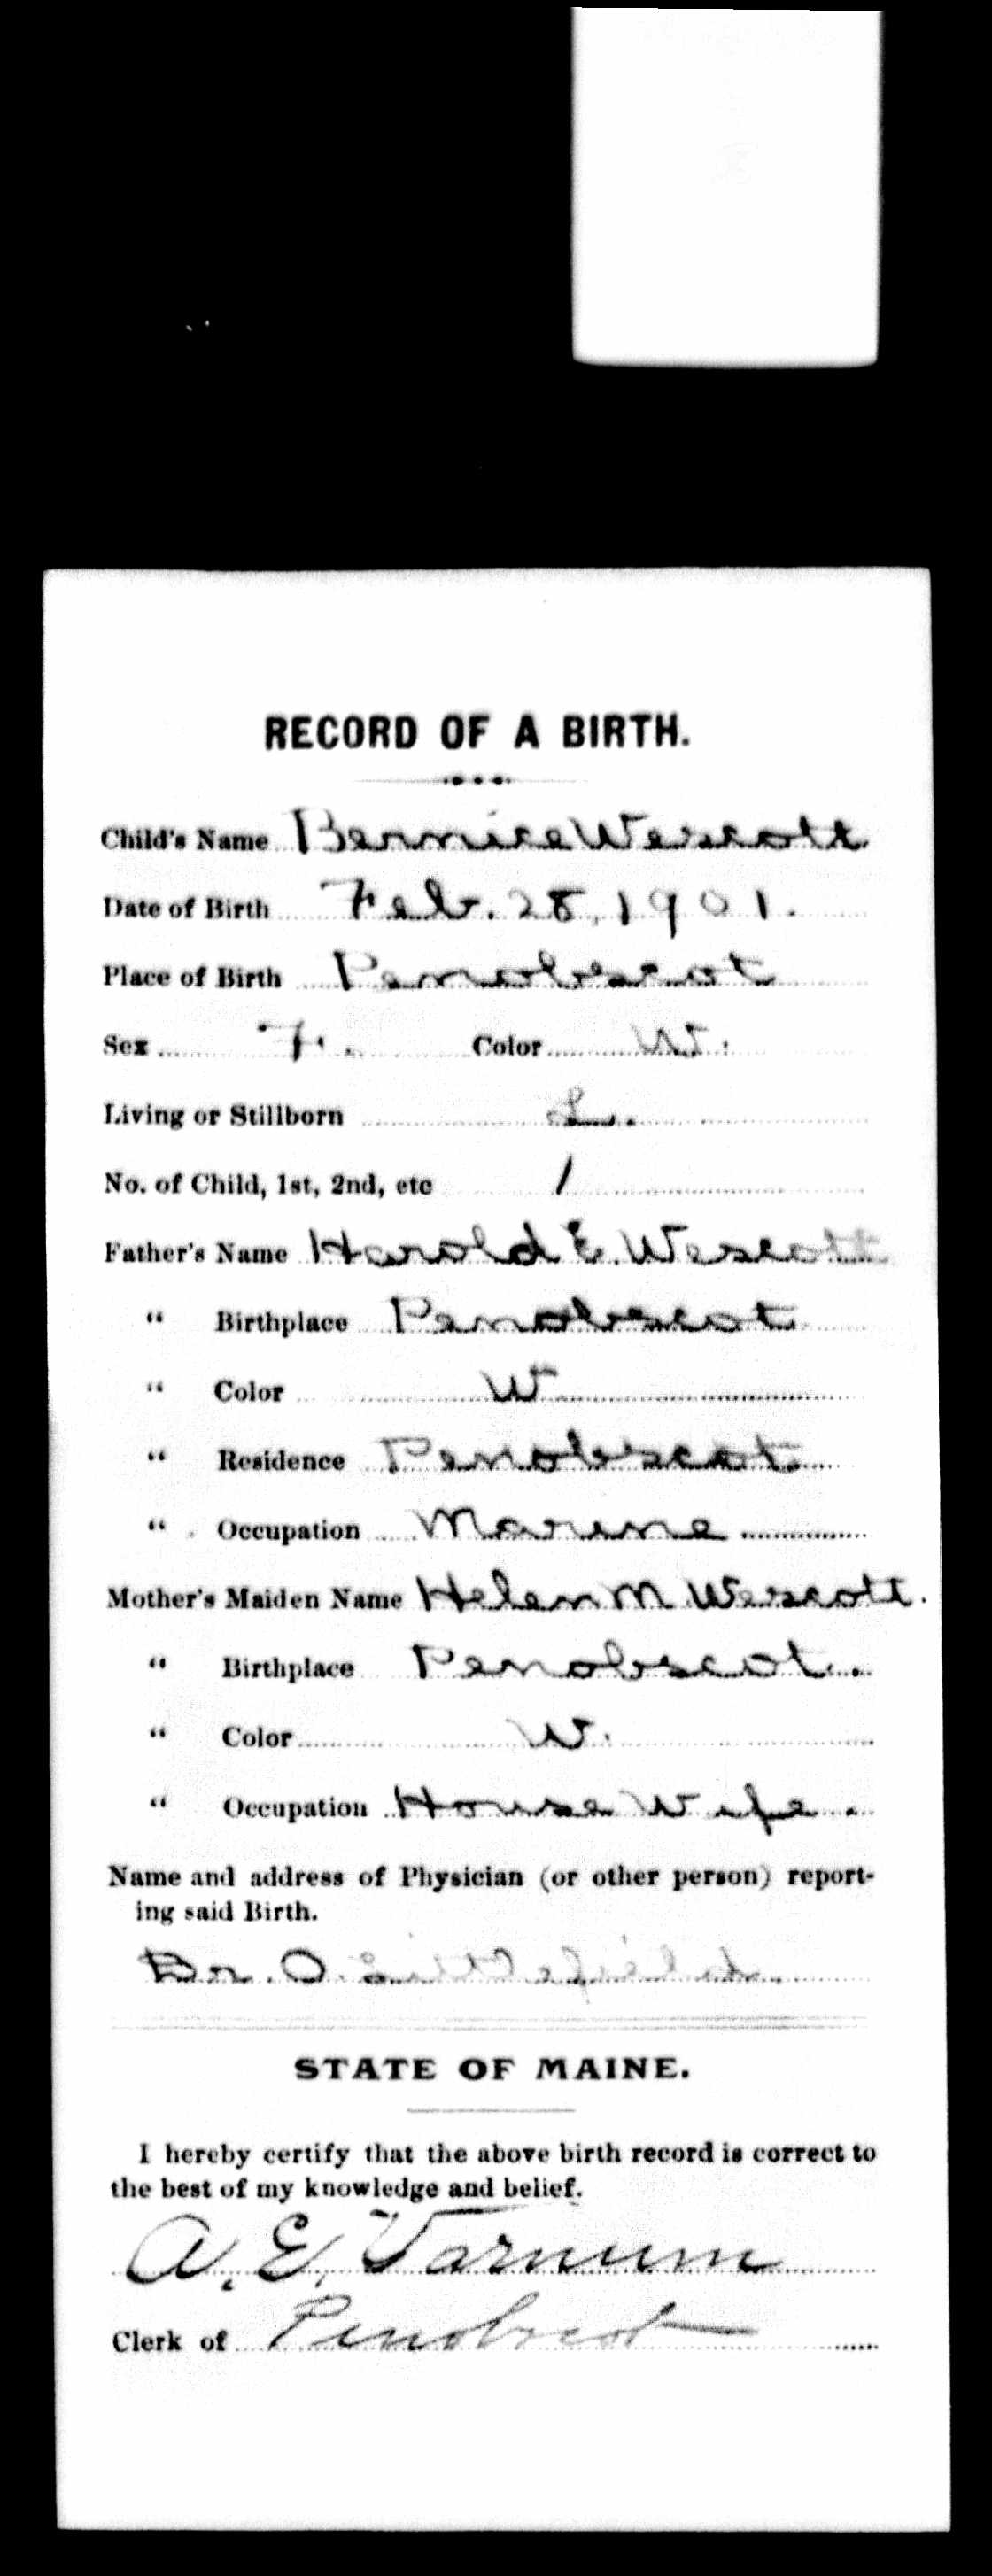 RECORD OF A BIRTH.
Child's Name Bernice Wescott
Date of Birth Feb. 28, 1901.
Place of Birth Penobscot
Sex F. Color W.
Living or Stillborn L.
No. of Child, 1st, 2nd, etc 1
Father's Name Harold E. Wescott
" Birthplace Penobscot
" Color W
" Residence Penobscot
" Occupation Marine
Mother's Maiden Name Helen M Wescott.
" Birthplace Penobscot.
" Color W.
" Occupation House Wife.
Name and address of Physician (or other person) report-
ing said Birth.
Dr. O. Littlefield.
STATE OF MAINE.
I hereby certify that the above birth record is correct to
the best of my knowledge and belief.
A. E. Varnum
Clerk of Penobscot